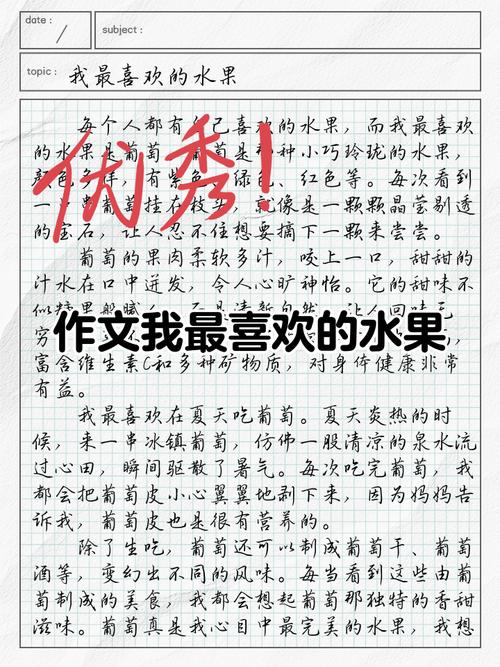 date :
subject :
topic : 我最喜欢的水果
每个人都有自己喜欢的水果，而我最喜欢
的水果是葡萄。葡萄是种小巧玲珑的水果，
颜色多样，有紫色、绿色、红色等。每次看到
一串葡萄挂在枝头，就像是一颗颗晶莹剔透
的宝石，让人忍不住想要摘下一颗来尝尝。
优秀！
葡萄的果肉柔软多汁，咬上一口，甜甜的
汁水在口中迸发，令人心旷神怡。它的甜味不
似糖果般腻人，而是清新自然，让人回味无
穷
作文我最喜欢的水果
富含维生素C和多种矿物质，对身体健康非常
有益。
我最喜欢在夏天吃葡萄。夏天炎热的时
候，来一串冰镇葡萄，仿佛一股清凉的泉水流
过心田，瞬间驱散了暑气。每次吃完葡萄，我
都会把葡萄皮小心翼翼地剥下来，因为妈妈告
诉我，葡萄皮也是很有营养的。
除了生吃，葡萄还可以制成葡萄干、葡萄
酒等，变幻出不同的风味。每当看到这些由葡
萄制成的美食，我都会想起葡萄那独特的香甜
滋味。葡萄真是我心目中最完美的水果，我想